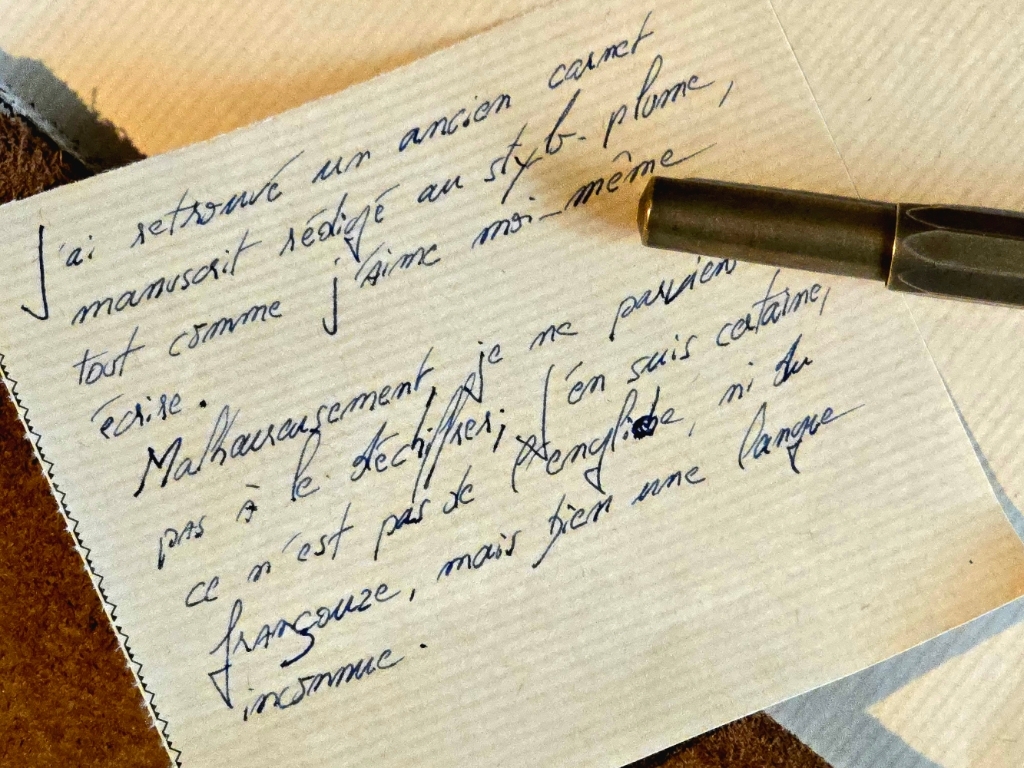 J'ai retrouvé un ancien carnet
manuscrit rédigé au stylo-plume,
tout comme j'aime moi-même
écrire.
Malheureusement, je ne parvien
pas à le déchiffrer; j'en suis certaine,
ce n'est pas de l'engliche, ni du
françouze, mais bien une langue
inconnue.